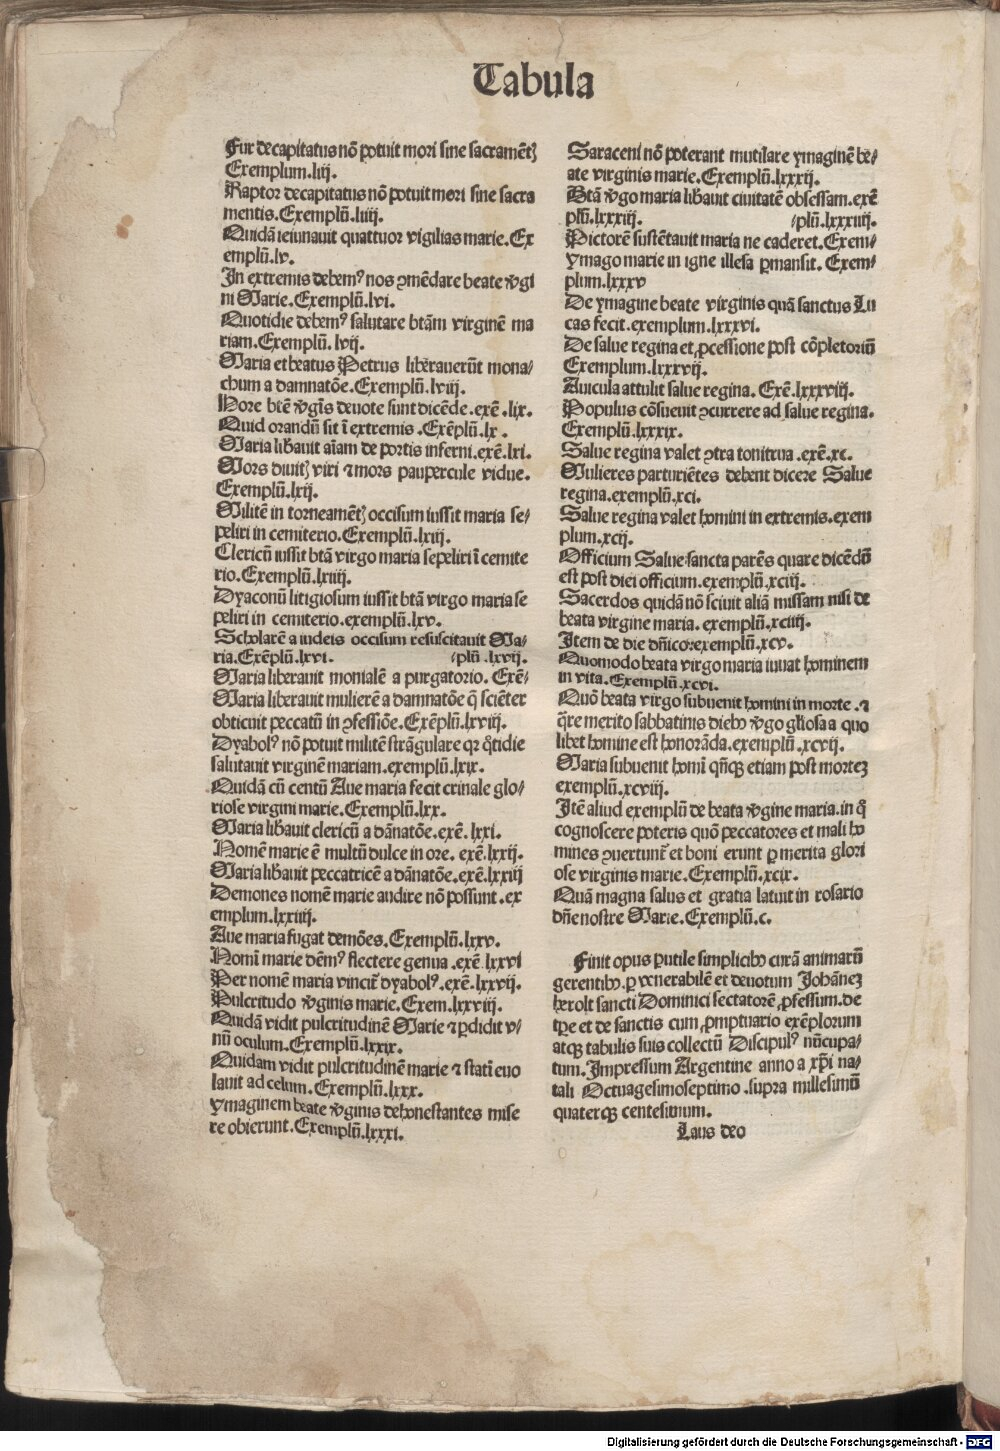 Tabula
Fur decapitatus nõ potuit mori sine sacramẽtꝭ
Exemplum.liij.
Raptor decapitatus nõ potuit mori sine sacra
mentis.Exemplũ.liiij.
Quidã ieiunauit quattuor vigilias marie.Ex
emplũ.lv.
In extremis debemꝰ nos ꝯmẽdare beate v̈gi
ni Marie.Exemplũ.lvi.
Quotidie debemꝰ salutare btãm virginẽ ma
riam.Exemplũ.lvij.
Maria et beatus Petrus liberauerũt mona⸗
chum a damnatõe.Exemplũ.lviij.
Hore btẽ v̈gĩs deuote sunt dicẽde.exẽ.lix.
Quid orandũ sit ĩ extremis.Exẽplũ.lx.
Maria libãuit aĩam de portis inferni.exẽ.lxi.
Mors diuitꝭ viri ⁊ mors paupercule vidue.
Exemplũ.lxij.
Militẽ in torneamẽtꝭ occisum iussit maria se⸗
peliri in cemiterio.Exemplũ.lxiij.
Clericũ iussit btã virgo maria sepeliri ĩ cemite
rio.Exemplũ.lxiiij.
Dyaconũ litigiosum iussit btã virgo maria se
peliri in cemiterio.exemplũ.lxv.
Scholarẽ a iudeis occisum resuscitauit Ma⸗
ria.Exẽplũ.lxvi. ⸗plũ.lxvij.
Maria liberauit monialẽ a purgatorio. Exẽ⸗
Maria liberauit mulierẽ a damnatõe ꝗ̃ sciẽter
obticuit peccatũ in ꝯfessiõe.Exẽplũ.lxviij.
Dyabolꝰ nõ potuit militẽ strãgulare qꝛ q̃tidie
salutauit virginẽ mariam.exemplũ.lxix.
Quidã cũ centũ Aue maria fecit crinale glo⸗
riose virgini marie.Exemplũ.lxx.
Maria libãuit clericũ a dãnatõe.exẽ.lxxi.
Nomẽ marie ẽ multũ dulce in ore. exẽ.lxxij.
Maria libãuit peccatricẽ a dãnatõe.exẽ.lxxiij
Demones nomẽ marie audire nõ possunt.ex
emplum.lxxiiij.
Aue maria fugat demões.Exemplũ.lxxv.
Nomĩ marie dẽmꝰ flectere genua.exẽ lxxvi
Per nomẽ maria vincit᷑ dyabolꝰ.exẽ.lxxvij.
Pulcritudo v̈ginis marie.Exem.lxxviij.
Quidã vidit pulcritudinẽ Marie ⁊ ꝑdidit v⸗
nũ oculum.Exemplũ.lxxix.
Quidam vidit pulcritudinẽ marie ⁊ statĩ euo
lauit ad celum.Exemplũ.lxxx.
Ymaginem beate v̈ginis dehonestantes mise
re obierunt.Exemplũ.lxxxi.
Saraceni nõ poterant mutilare ymaginẽ be⸗
ate virginis marie.Exemplũ.lxxxij.
Btã v̈go maria libãuit ciuitatẽ obsessam.exẽ
plũ.lxxxiij. ⸗plũ.lxxxiiij.
Pictorẽ sustẽtauit maria ne caderet.Exem⸗
Ymago marie in igne illesa ꝑmansit. Exem⸗
plum.lxxxv
De ymagine beate virginis quã sanctus Lu
cas fecit.exemplum.lxxxvi.
De salue regina et ꝓcessione post cõpletoriũ
Exemplum.lxxxvij.
Auicula attulit salue regina. Exẽ.lxxxviij.
Populus cõsueuit ꝯcurrere ad salue regina.
Exemplũ.lxxxix.
Salue regina valet ꝯtra tonitrua.exẽ.xc.
Mulieres parturiẽtes debent dicere Salue
regina.exemplũ.xci.
Salue regina valet homini in extremis.exem
plum.xcij.
Officium Salue sancta parẽs quare dicẽdũ
est post diei officium.exemplũ.xciij.
Sacerdos quidã nõ sciuit aliã missam nisi de
beata virgine maria. exemplũ.xciiij.
Item de die dñico.exemplũ.xcv.
Quomodo beata virgo maria iuuat hominem
in vita.Exemplũ.xcvi.
Quõ beata virgo subuenit homini in morte.⁊
q̃re merito sabbatinis diebꝰ v̈go gl̃iosa a quo
libet homine est honorãda.exemplũ.xcvij.
Maria subuenit homĩ qñqꝫ etiam post morteꝫ
exemplũ.xcviij.
Itẽ aliud exemplũ de beata v̈gine maria.in q̊
cognoscere poteris quõ peccatores et mali ho
mines ꝯuertunt᷑ et boni erunt ꝑ merita glori
ose virginis marie.Exemplũ.xcix.
Quã magna salus et gratia latuit in rosario
dñe nostre Marie.Exemplũ.c.
Finit opus ꝑutile simplicibꝰ curã animarũ
gerentibꝰ.ꝑ venerabilẽ et deuotum Johãneꝫ
herolt sancti Dominici sectatorẽ ꝓfessum.de
tꝑe et de sanctis cum ꝓmptuario exẽplorum
atqꝫ tabulis suis collectũ Discipulꝰ nũcupa⸗
tum.Impressum Argentine anno a xp̃i na⸗
tali Octuagesimoseptimo.supra millesimũ
quaterqꝫ centesimum.
Laus deo
Digitalisierung gefördert durch die Deutsche Forschungsgemeinschaft - DFG